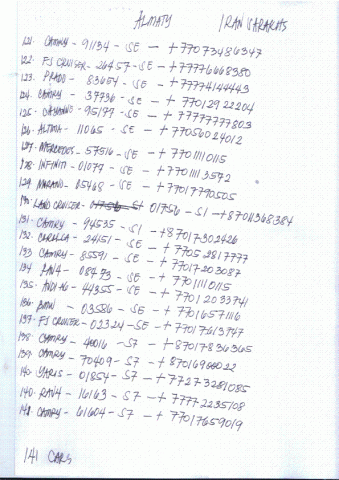 ALMATY
121. CAMRY - 91134 - SE - +77073486347
122. FJ CRUISER - 26457 - SE - +77776668380
123. PRADO - 83654 - SE - +77774144443
124. CAMRY - 37736 - SE - +77012922204
125. - 95177 - SE - +77777777803
126. ALTIMA - 11065 - SE - +77056024012
127. MERCEDES - 57516 - SE - +7701110115
128. INFINITI - 01077 - SE - +7701113572
129. MURANO - 05468 - SE - +77017790505
130. LAND CRUISER - 01756 - S1 - +87011368384
131. CAMRY - 94535 - S1 - +87017302426
132. COROLLA - 24151 - SE - +77052817777
133 CAMRY - 85591 - SE - +77017203087
134 RAV4 - 08473 - SE - +7701110115
135. - 44355 - SE - +77012033741
136. BMW - 03586 - SE - +7701657116
137. FJ CRUISER - 02324 - SE - +77017613747
138. CAMRY - 40016 - S7 - +87017836365
139. CAMRY - 70409 - S7 - +8701696022
140. YARIS - 01854 - S7 - +77273281085
140. RAV4 - 16163 - S7 - +77772235108
141. CAMRY - 61604 - S7 - +77017659019
141 CARS